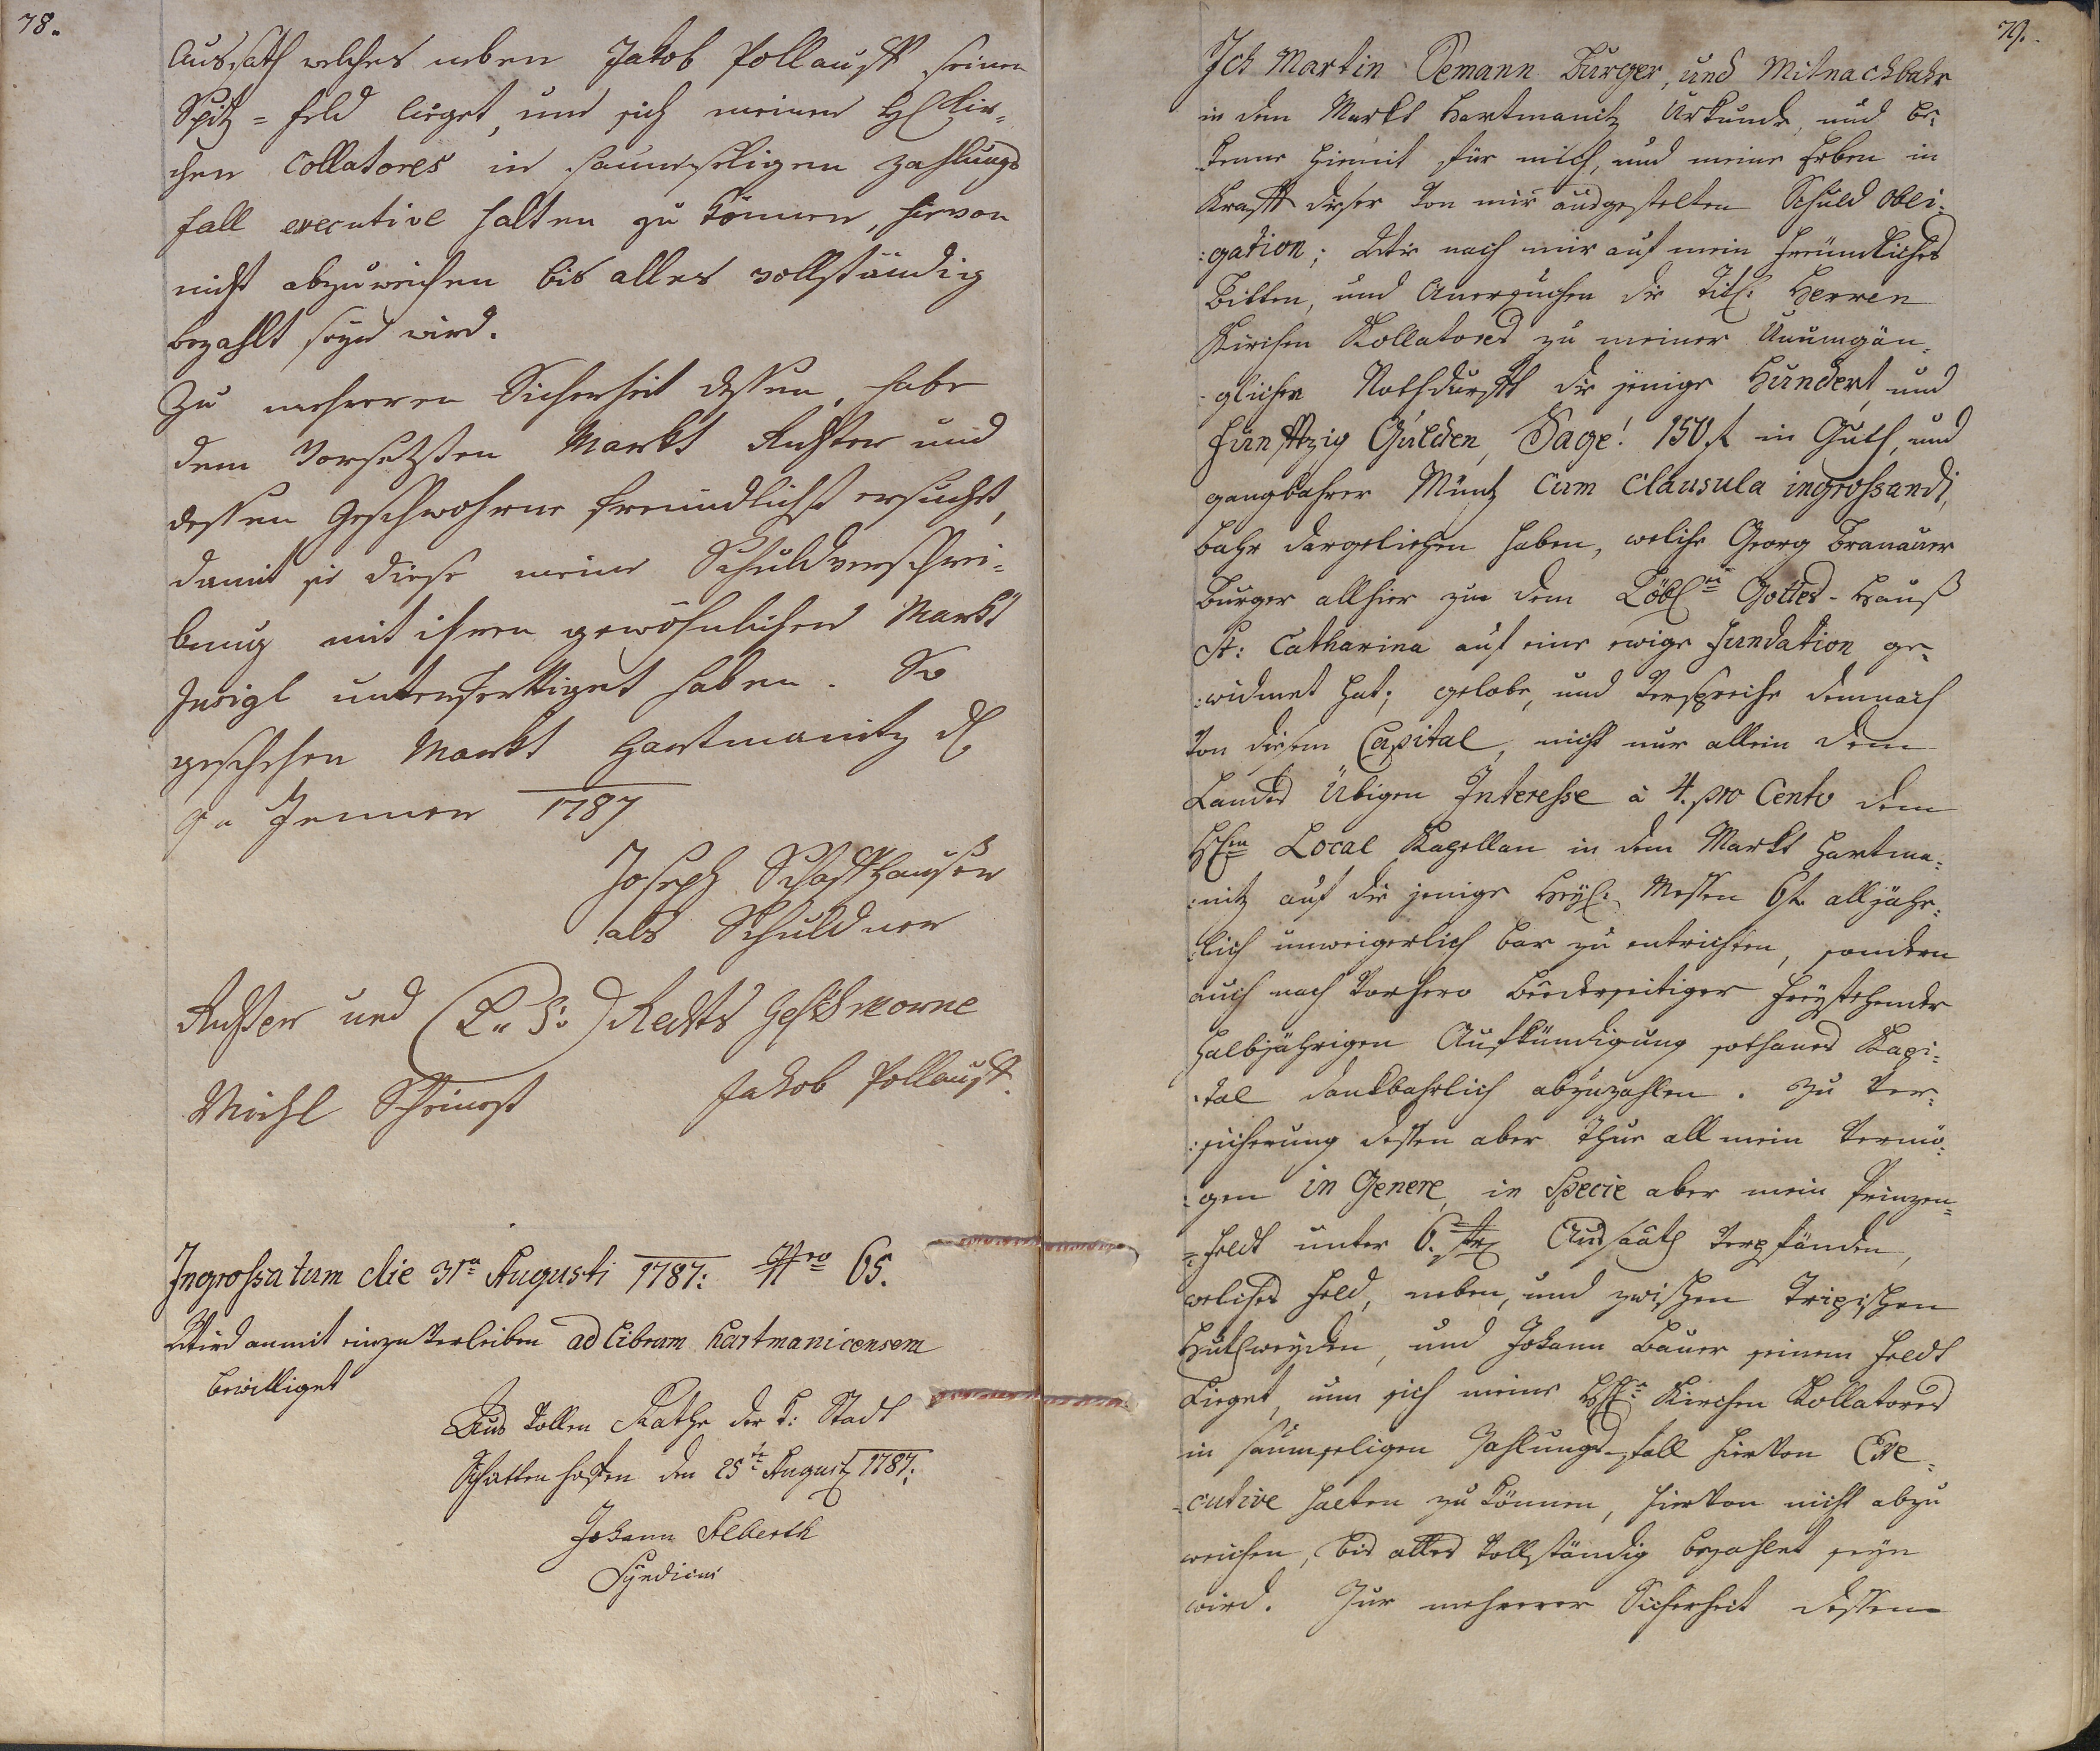 78.
Aussath welches neben Jakob Pollauff seinen
Spitz = feld lieget, und sich meinen Hl Kir¬
chen Collatores in saumseligen Zahlungs
fall executive halten zu können, hievon
nicht abzuweichen bis alles vollständig
bezahlt seyn wird.
Zu mehreren Sicherheit dessen, habe
dem Vorsetzten Markt Richter und
dessen Geschwohrne freundlichst ersucht,
damit sie diese meine Schuldverschrei=
bung mit ihren gewöhnlichen Markt
Insigl unterferttiget haben. So
geschehen Markt Hartmanitz d
Jenner 1787
Joseph Schaffhauser
als Schuldner
Richter und (L: S:) Rechts Geschworne
Michl Jakob Pollauff.
Ingrossatum die 31a Augusti 1787: Nro 65.
Wird anmit einzuverleiben ad Librum Hartmanicensem
bewilliget
Aus vollen Rathe der k: Stadt
Schüttenhofen den 25te August 1787.
Johann Alberth
Syndicus
79.
Ich Martin Oemann Burger, und Mitnachbahr
in dem Markt Hartmanitz Urkunde, und be:
kenne hiemit für mich, und meine Erben in
Krafft dieser von mir ausgestelten Schuld obli:
:gation; Wie nach mir auf mein freundliches
Bitten, und Anersuchen die Titl: Herren
Kirchen Kollatores zu meiner Unumgän¬
:glichen Nothdurfft die jenige Hundert, und
Funfftzig Gulden, Sage! 150 f in Guth, und
gangbahrer Müntz cum clausula ingrossandi,
bahr dargeliehen haben, welche Georg Branauer
Burger allhier zu dem Löbl. Gottes-Hauß
St: Catharina auf eine ewige fundation ge¬
:widmet hat; gelobe, und verspreche demnach
von diesem Capital, nicht nur allein dem
Landes Übigen Interesse à 4. pro Cento dem
Local Kapellan in dem Markt Hartma:
:nitz auf die jenige Heyl: Messen 6 f. alljähr:
:lich unweigerlich bar zu entrichten, sondern
auch nach vorhero beederseitiger freystehender
halbjährigen Aufkündigung sothanes Kapi:
:tal dankbahrlich abzuzahlen. Zu ver:
:sicherung dessen aber Thue all mein vermö:
:gen in Genere, in Specie aber mein Prinzen=
=feldt unter 6. Aussaath verpfänden,
welches feld, neben, und zwischen
Huthweyden, und Johann Bauer seinem feldt
Lieget, um sich meine Kirchen Kollatores
in saumseligen Zahlungs-fall hiervon Exe¬
cutive halten zu können, hiervon nicht abzu
weichen, bis alles vollständig bezahlet seyn
wird. Zur mehrerer Sicherheit dessen